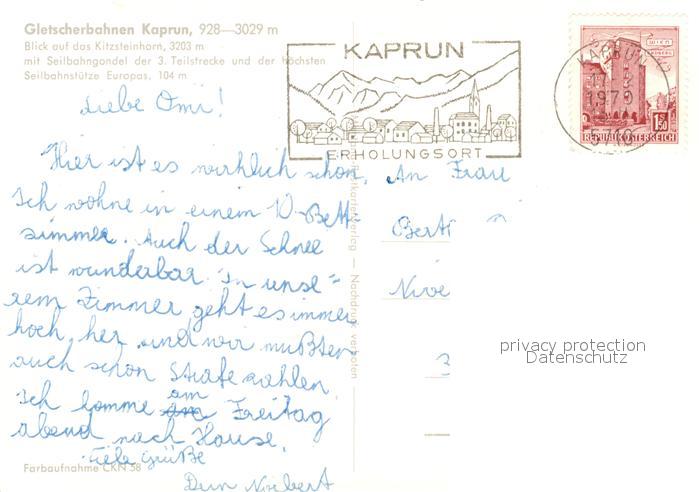 Gletscherbahnen Kaprun, 928—3029 m
Blick auf das Kitzsteinhorn, 3203 m
mit Seilbahngondel der 3. Teilstrecke und der höchsten
Seilbahnstütze Europas, 104 m
KAPRUN
ERHOLUNGSORT
WIEN
KAPRUN
1970
5710
1.50
REPUBLIK ÖSTERREICH
Liebe Omi!
Hier ist es wirklich schön.
Ich wohne in einem 10-Bett-
zimmer. Auch der Schnee
ist wunderbar. In unse=
rem Zimmer geht es immer
hoch her, und wir mußten
auch schon Strafe zahlen.
Ich komme am Freitag
abend nach Hause.
Viele Grüße
Dein Norbert
An Frau
Bert
Nive
3
Nachdruck verboten
privacy protection
Datenschutz
Farbaufnahme CKN 58